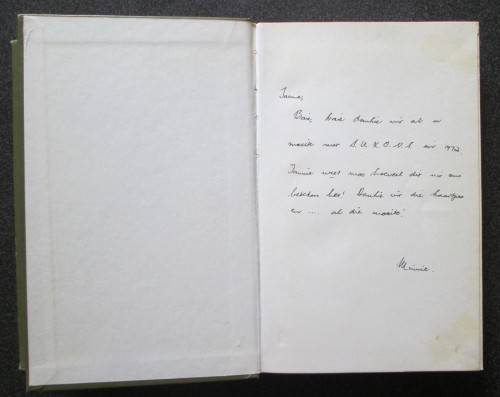 Tannie,
Baie, baie dankie vir al u
moeite met S.U.K.O.V.S. vir 1972
Tannie weet mos hoeveel dit vir ons
beteken het! Dankie vir die
en ... al die moeite!
Minnie.